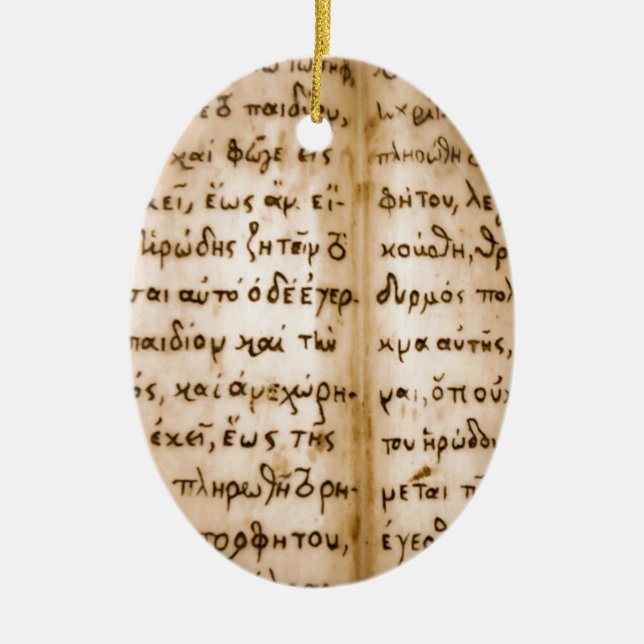 Ἰωσὴφ,
παιδίον,
καὶ φῦγε εἰς
κεῖ, ἕως ἄν εἴ-
Ἡρώδης ζητεῖν τὸ
ται αὐτό ὁ δὲ ἐγερ-
παιδίον καὶ τὴν
ός, καὶ ἀνεχώρη-
ἐκεῖ, ἕως τῆς
πληρωθῇ τὸ ρη-
προφήτου,
πληρωθῇ
φήτου, λε
κούσθη, θρ
δυρμός πολ
κνα αὐτῆς,
ναι, ὅτι οὐκ
του Ἡρώδου
νεται
ἐγερθ